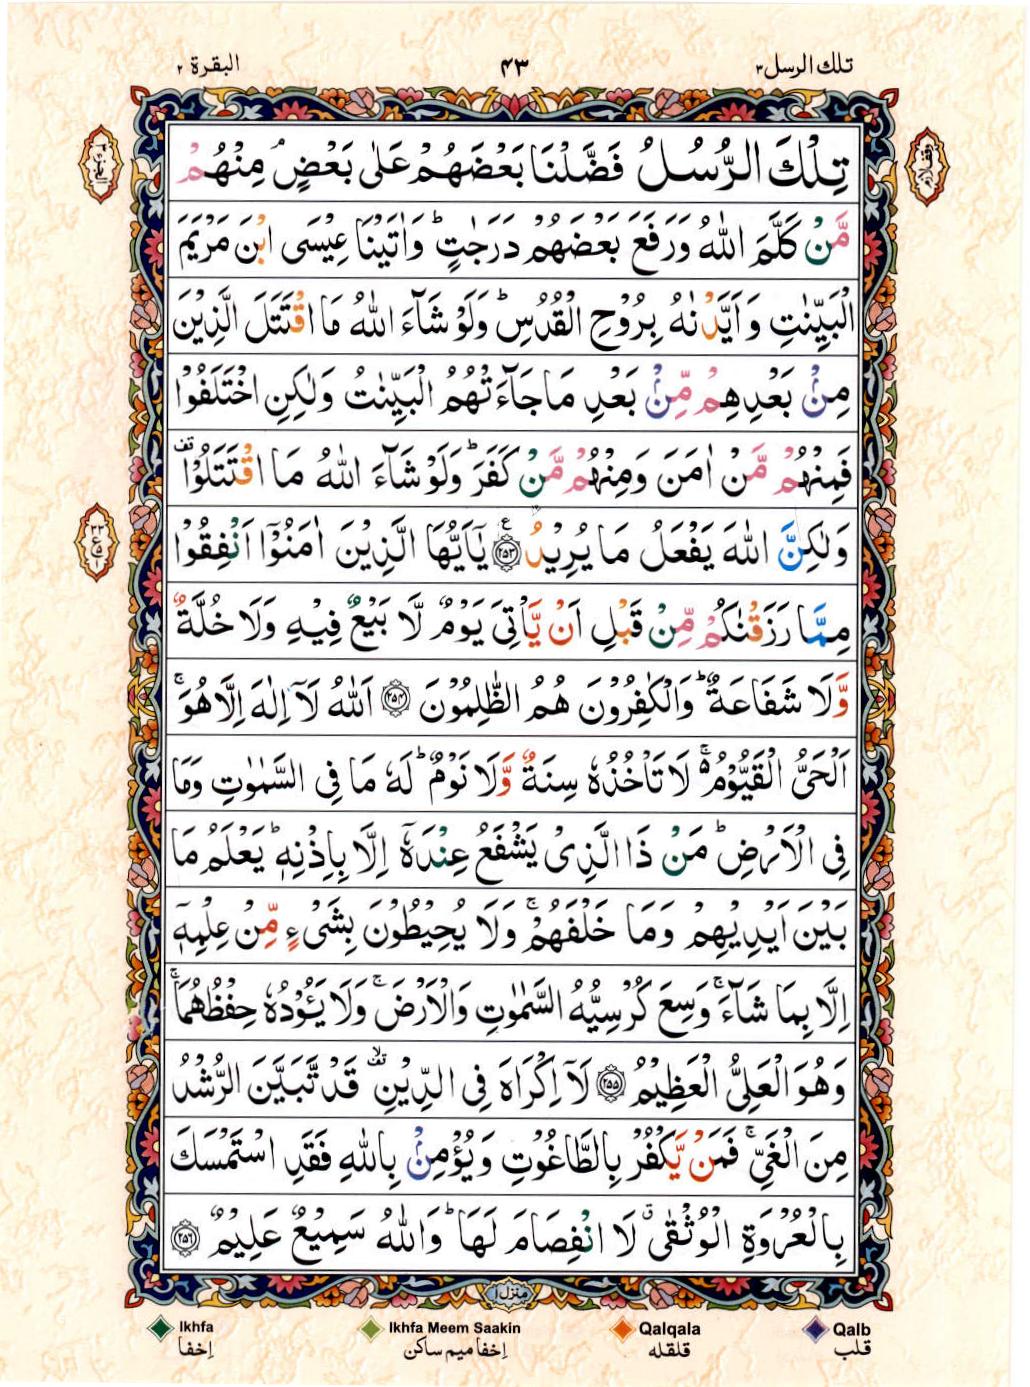 تلك الرسل ٣
۴۳
البقرة ٢
تِلْكَ الرُّسُلُ فَضَّلْنَا بَعْضَهُمْ عَلٰى بَعْضٍ ۘ مِنْهُمْ
مَّنْ كَلَّمَ اللّٰهُ وَرَفَعَ بَعْضَهُمْ دَرَجٰتٍ ؕ وَاٰتَيْنَا عِيْسَى ابْنَ مَرْيَمَ
الْبَيِّنٰتِ وَاَيَّدْنٰهُ بِرُوْحِ الْقُدُسِ ؕ وَلَوْ شَآءَ اللّٰهُ مَا اقْتَتَلَ الَّذِيْنَ
مِنْۢ بَعْدِهِمْ مِّنْۢ بَعْدِ مَا جَآءَتْهُمُ الْبَيِّنٰتُ وَلٰكِنِ اخْتَلَفُوْا
فَمِنْهُمْ مَّنْ اٰمَنَ وَمِنْهُمْ مَّنْ كَفَرَ ؕ وَلَوْ شَآءَ اللّٰهُ مَا اقْتَتَلُوْا قف
وَلٰكِنَّ اللّٰهَ يَفْعَلُ مَا يُرِيْدُ ﴿۲۵۳﴾ ع يٰۤاَيُّهَا الَّذِيْنَ اٰمَنُوْۤا اَنْفِقُوْا
مِمَّا رَزَقْنٰكُمْ مِّنْ قَبْلِ اَنْ يَّاْتِىَ يَوْمٌ لَّا بَيْعٌ فِيْهِ وَلَا خُلَّةٌ
وَّلَا شَفَاعَةٌ ؕ وَالْكٰفِرُوْنَ هُمُ الظّٰلِمُوْنَ ﴿۲۵۴﴾ اَللّٰهُ لَاۤ اِلٰهَ اِلَّا هُوَ ۚ
اَلْحَىُّ الْقَيُّوْمُ ۚ لَا تَاْخُذُهٗ سِنَةٌ وَّلَا نَوْمٌ ؕ لَهٗ مَا فِى السَّمٰوٰتِ وَمَا
فِى الْاَرْضِ ؕ مَنْ ذَا الَّذِىْ يَشْفَعُ عِنْدَهٗۤ اِلَّا بِاِذْنِهٖ ؕ يَعْلَمُ مَا
بَيْنَ اَيْدِيْهِمْ وَمَا خَلْفَهُمْ ۚ وَلَا يُحِيْطُوْنَ بِشَىْءٍ مِّنْ عِلْمِهٖۤ
اِلَّا بِمَا شَآءَ ۚ وَسِعَ كُرْسِيُّهُ السَّمٰوٰتِ وَالْاَرْضَ ۚ وَلَا يَـُٔوْدُهٗ حِفْظُهُمَا ۚ
وَهُوَ الْعَلِىُّ الْعَظِيْمُ ﴿۲۵۵﴾ لَاۤ اِكْرَاهَ فِى الدِّيْنِ ۙ قف قَدْ تَّبَيَّنَ الرُّشْدُ
مِنَ الْغَىِّ ۚ فَمَنْ يَّكْفُرْ بِالطَّاغُوْتِ وَيُؤْمِنْۢ بِاللّٰهِ فَقَدِ اسْتَمْسَكَ
بِالْعُرْوَةِ الْوُثْقٰى ۗ لَا انْفِصَامَ لَهَا ؕ وَاللّٰهُ سَمِيْعٌ عَلِيْمٌ ﴿۲۵۶﴾
منزل ١
Ikhfa Ikhfa Meem Saakin Qalqala Qalb
إخفا إخفا ميم ساكن قلقله قلب